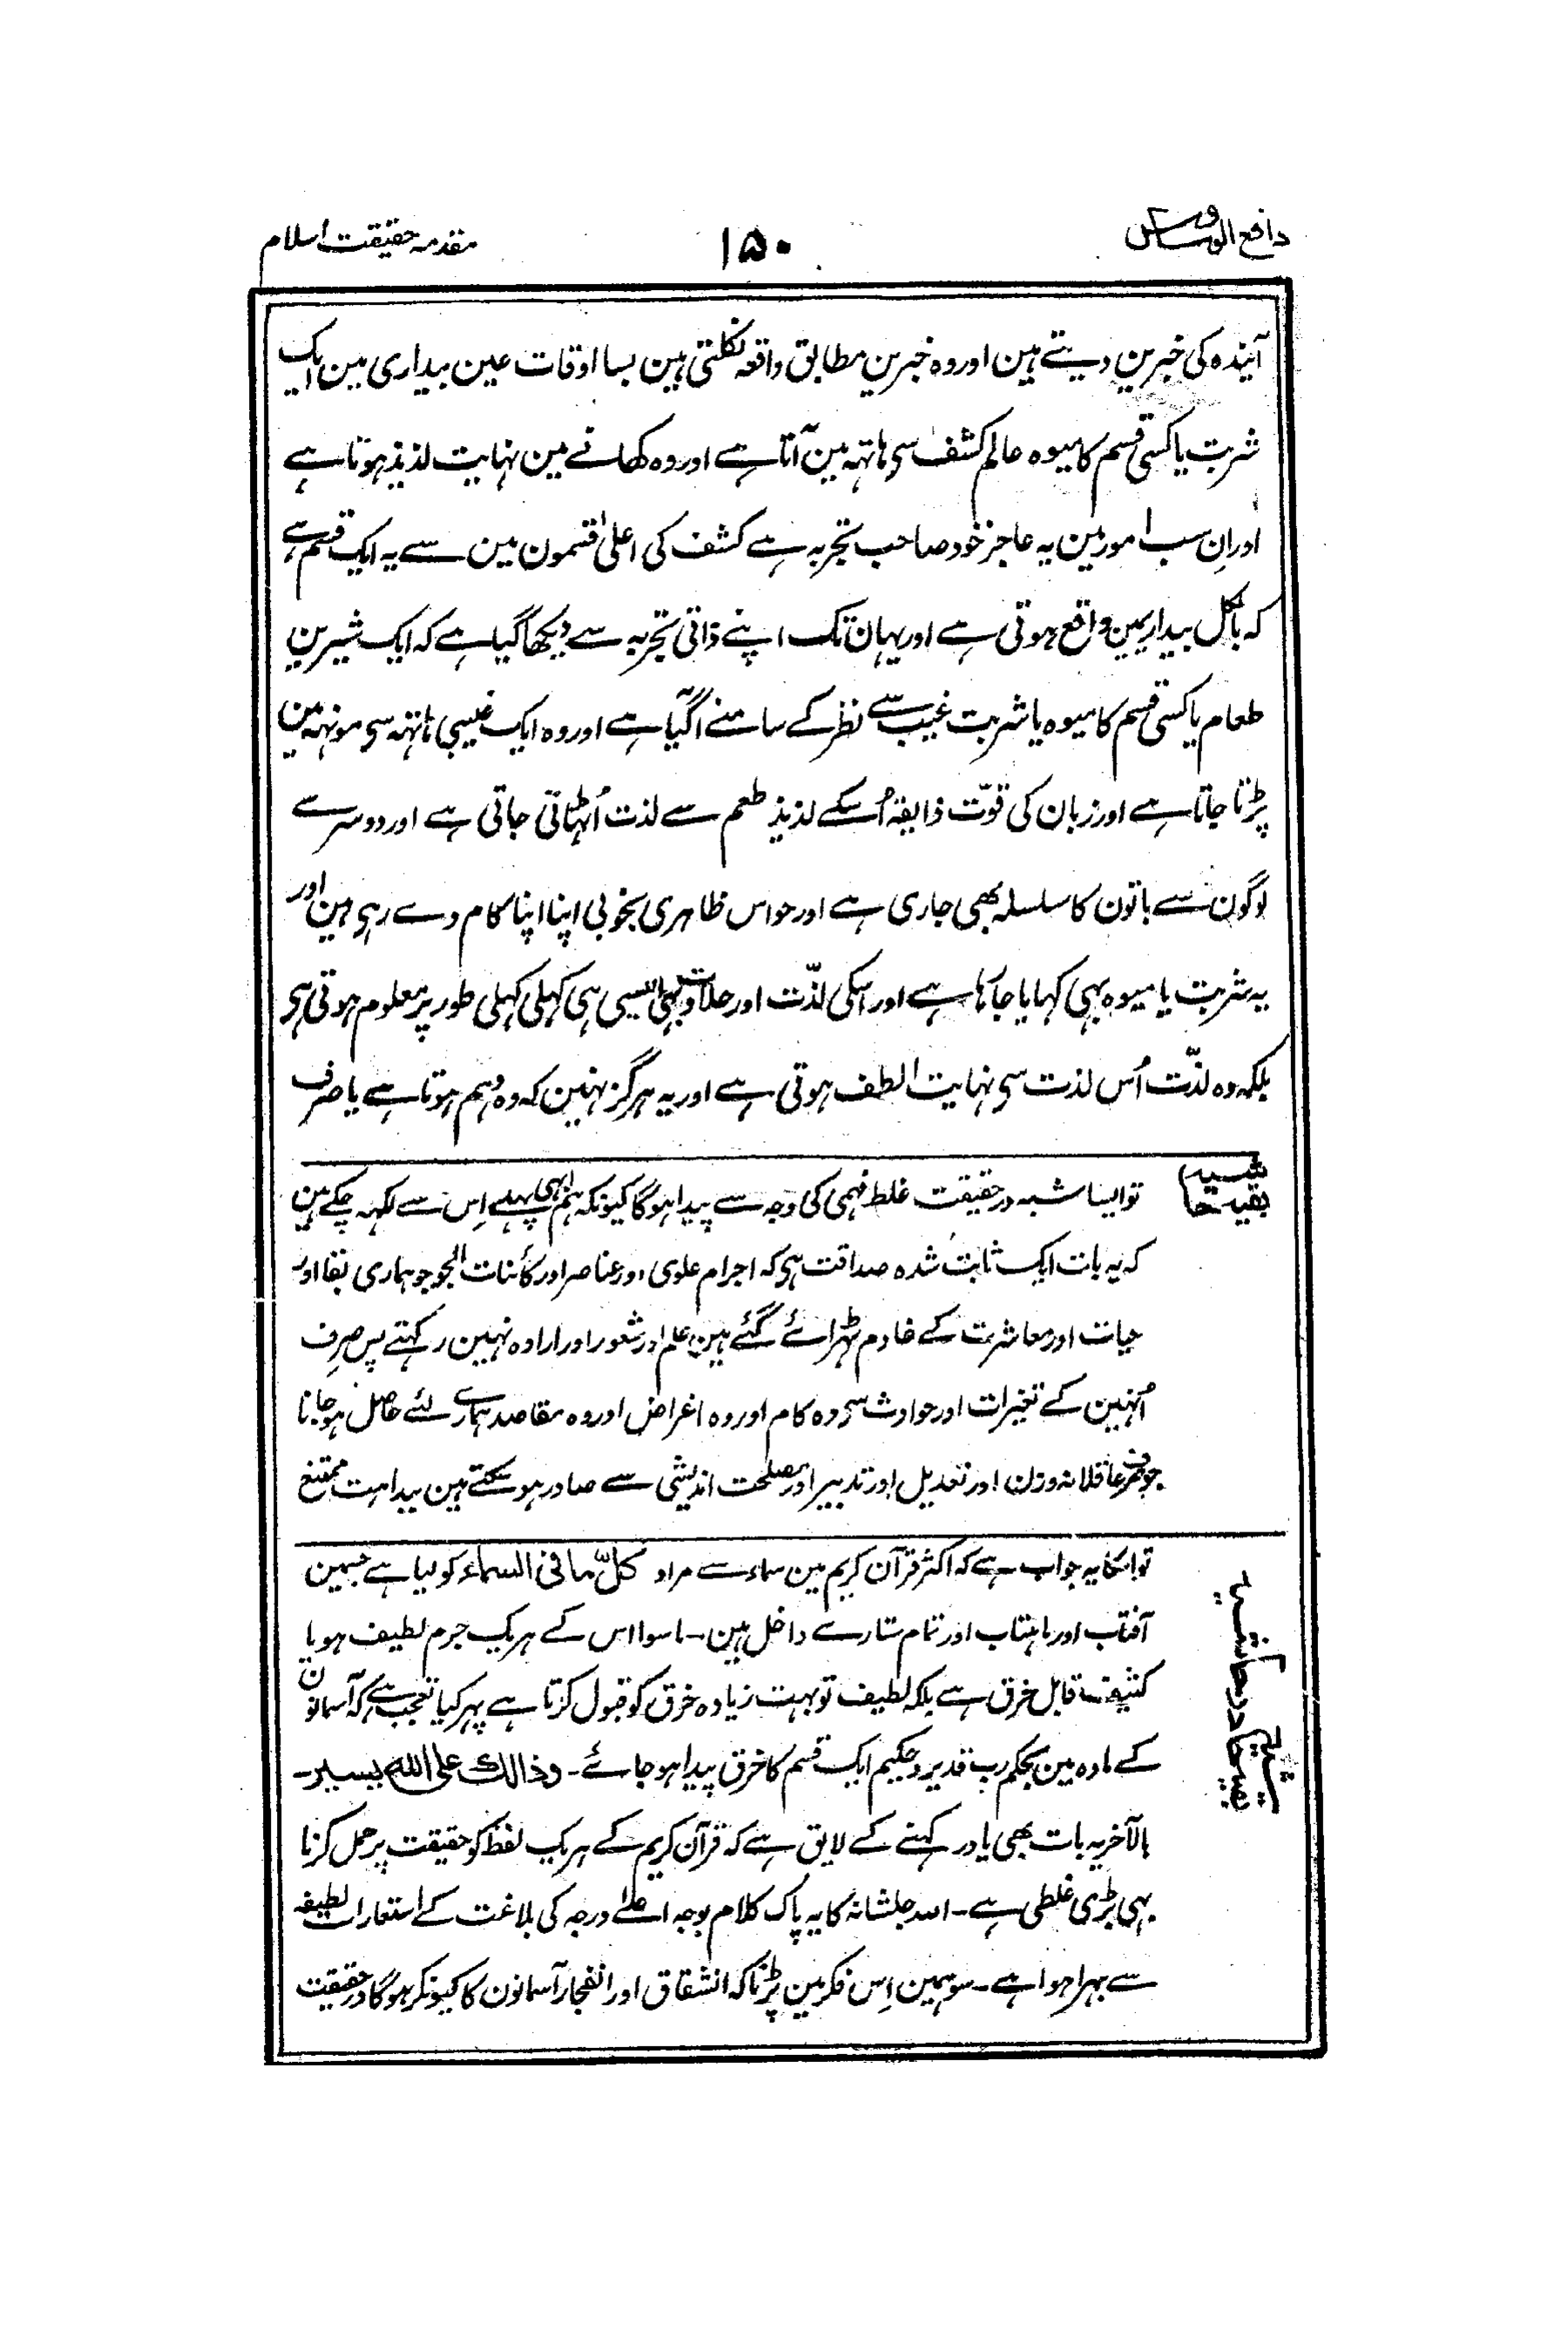 دافع الوساوس
۱۵۰
مقدمہ حقیقت اسلام
آیندہ کی خبرین دیتے ہین اور وہ خبرین مطابق واقعہ نکلتی ہین بسا اوقات عین بیداری مین ایک
شربت یا کسی قسم کا میوہ عالم کشف سی ہاتہہ مین آتا ہے اور وہ کھانے مین نہایت لذیذ ہوتا ہے
اور اِن سب امور مین یہ عاجز خود صاحب تجربہ ہے کشف کی اعلیٰ قسمون مین سے یہ ایک قسم ہے
کہ بالکل بیداریمین واقع ہوتی ہے اور یہان تک اپنے ذاتی تجربہ سے دیکھا گیا ہے کہ ایک شیرین
طعام یا کسی قسم کا میوہ یا شربت غیب سے نظر کے سامنے آگیا ہے اور وہ ایک غیبی ہاتہہ سی مونہہ مین
پڑتا جاتا ہے اور زبان کی قوّت ذایقہ اُسکے لذیذ طعم سے لذت اُٹہاتی جاتی ہے اور دوسرے
لوگون سے باتون کا سلسلہ بھی جاری ہے اور حواس ظاہری بخوبی اپنا اپنا کام دے رہی ہین اور
یہ شربت یا میوہ بہی کہایا جا رہا ہے اور اسکی لذّت اور حلاوت بہی ایسی ہی کہلی کہلی طور پر معلوم ہوتی ہی
بلکہ وہ لذّت اُس لذت سی نہایت الطف ہوتی ہے اور یہ ہرگز نہین کہ وہ وہم ہوتا ہے یا صرف
بقیہ حاشیہ
تو ایسا شبہ درحقیقت غلط فہمی کی وجہ سے پیدا ہوگا کیونکہ ہم ابہی پہلے اِس سے لکہہ چکے ہین
کہ یہ بات ایک ثابت شدہ صداقت ہی کہ اجرام علوی اور عناصر اور کائنات الجو جو ہماری بقا اور
حیات اور معاشرت کے خادم ٹہرائے گئے ہین علم اور شعور اور ارادہ نہین رکہتے پس صرِف
اُنہین کے تغیرات اور حوادث سی وہ کام اور وہ اغراض اور وہ مقاصد ہمارے لئے حاصل ہوجانا
جو صرف عاقلانہ وزن اور تعدیل اور تدبیر اور مصلحت اندیشی سے صادر ہو سکتے ہین ببداہت ممتنع
بقیہ حاشیہ در حاشیہ
تو اسکا یہ جواب ہے کہ اکثر قرآن کریم مین سماء سے مراد کلّ ما فی السماء کو لیا ہے جسمین
آفتاب اور ماہتاب اور تمام ستارے داخل ہین۔ ماسوا اس کے ہریک جرم لطیف ہو یا
کثیف قابل خرق ہے بلکہ لطیف تو بہت زیادہ خرق کو قبول کرتا ہے پہر کیا تعجب ہے کہ آسمانون
کے مادہ مین بحکم رب قدیر و حکیم ایک قسم کا خرق پیدا ہو جائے۔ وذالک علی اللّٰہ یسیر۔
بالآخر یہ بات بھی یاد رکہنے کے لایق ہے کہ قرآن کریم کے ہریک لفظ کو حقیقت پر حمل کرنا
بہی بڑی غلطی ہے۔ اللہ جلشانہ کا یہ پاک کلام بوجہ اعلےٰ درجہ کی بلاغت کے استعارات لطیفہ
سے بہرا ہوا ہے۔ سو ہمین اِس فکر مین پڑنا کہ انشقاق اور انفجار آسمانون کا کیونکر ہوگا درحقیقت